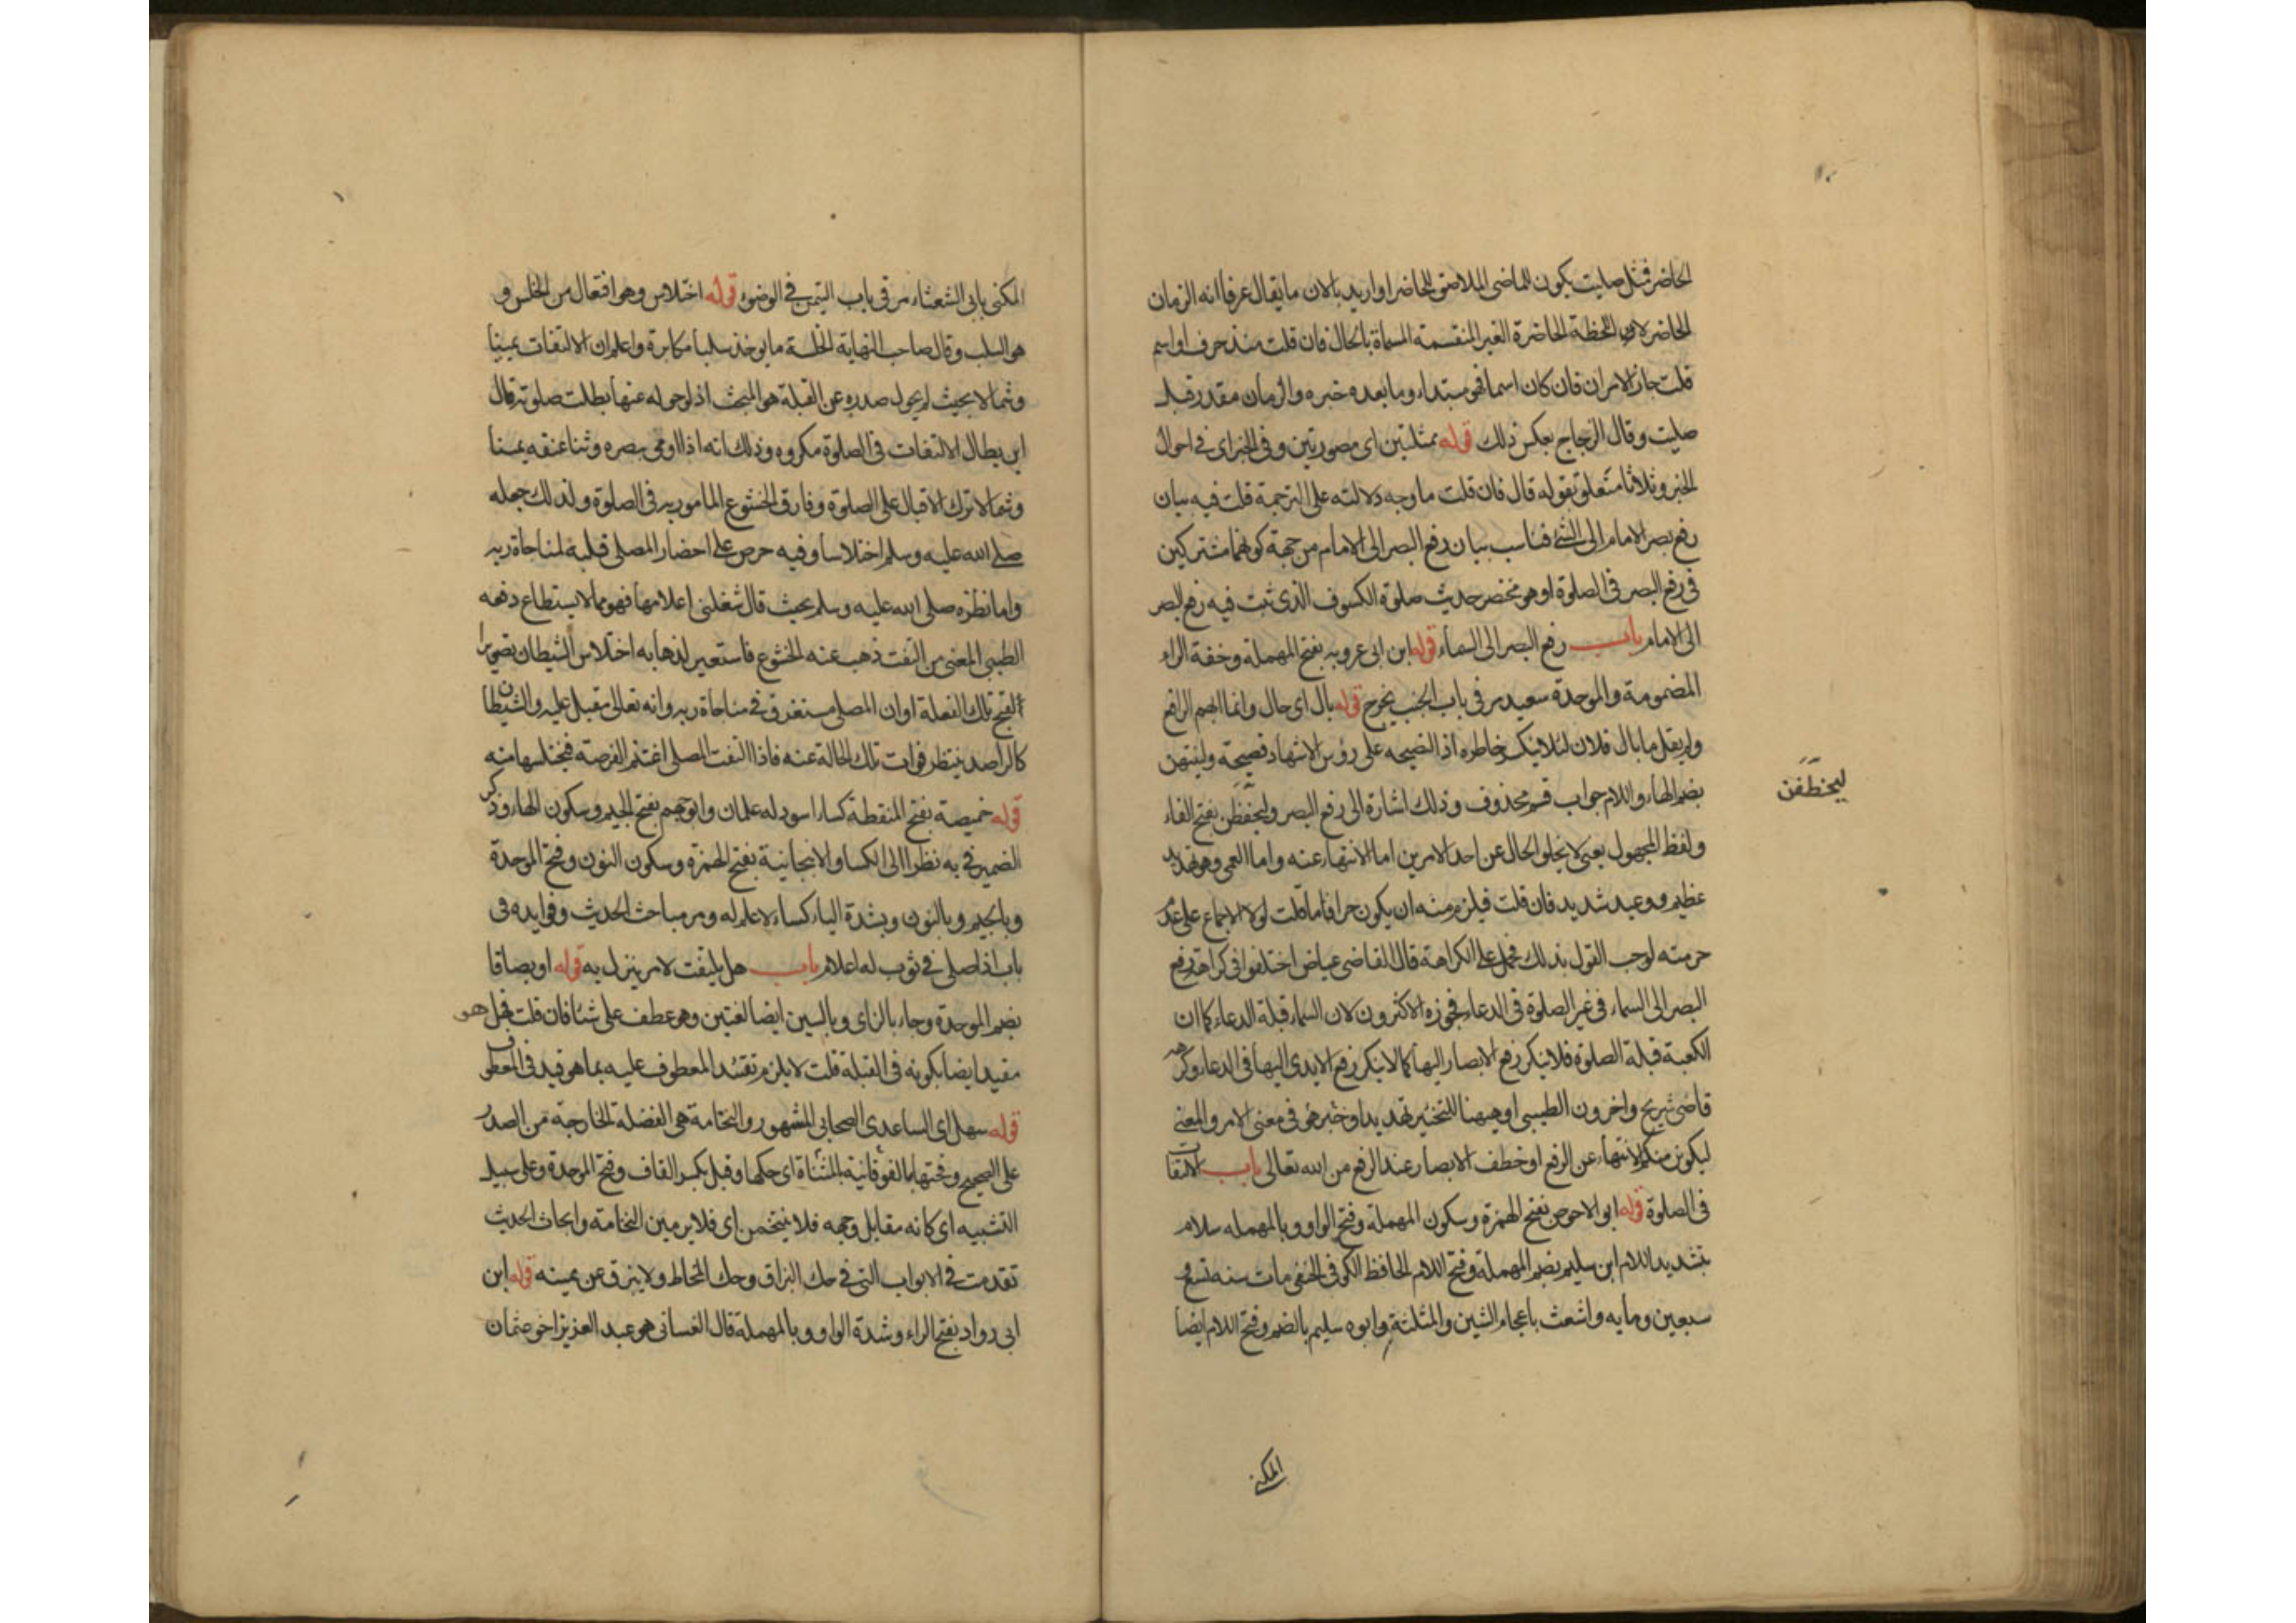 الحاضر فمثل صليت يكون للماضى الملاصق للحاضر او اريد بالان ما يقال عرفا انه الزمان
الحاضر لا اللحظة الحاضرة الغير المنقسمة المسماة بالحال فان قلت منذ حرف او اسم
قلت جاز الامران فان كان اسما فهو مبتداء وما بعده خبره والزمان مقدر قبل
صليت وقال الزجاج بعكس ذلك قوله ممثلتين اى مصورتين وفى الخبر اى فى احوال
الخبر وثلاثا متعلق بقوله قال فان قلت ما وجه دلالته على الترجمة قلت فيه بيان
رفع بصر الامام الى الشئ فناسب بيان رفع البصر الى الامام من جهة كونهما مشتركين
فى رفع البصر فى الصلوة او هو مختصر حديث صلوة الكسوف الذى ثبت فيه رفع البصر
الى الامام باب رفع البصر الى السماء قوله ابن ابى عروبه بفتح المهملة وخفة الراء
المضمومة والموحدة سعيد مر فى باب الجنب يخرج قوله بال اى حال وانما ابهم الرافع
ولم يقل ما بال فلان لئلا ينكسر خاطره اذ النصيحه على رؤس الاشهاد فضيحة ولينتهن
بضم الهاء واللام جواب قسم محذوف وذلك اشارة الى رفع البصر وليخطفن بفتح الفاء
ليخطفن
ولفظ المجهول يعنى لا يخلو الحال عن احد الامرين اما الانتهاء عنه واما العمى وهو تهديد
عظيم ووعيد شديد فان قلت فيلزم منه ان يكون حراما قلت لولا الاجماع على عدم
حرمته لوجب القول بذلك فحمل على الكراهة قال القاضى عياض اختلفوا فى كراهة رفع
البصر الى السماء فى غير الصلوة فى الدعاء فجوزه الاكثرون لان السماء قبلة الدعاء كما ان
الكعبة قبلة الصلوة فلا ينكر رفع الابصار اليها كما لا ينكر رفع الايدى اليها فى الدعاء وكرهه
قاضى شريح واخرون الطيبى او ههنا للتخيير تهديدا وخبر هو فى معنى الامر والمعنى
ليكونن منكم الانتهاء عن الرفع او خطف الابصار عند الرفع من الله تعالى باب الالتفات
فى الصلوة قوله ابو الاحوص بفتح الهمزة وسكون المهملة وفتح الواو وبالمهمله سلام
بتشديد اللام ابن سليم بضم المهملة وفتح اللام الحافظ الكوفى الحنفى مات سنه تسع و
سبعين ومايه واشعث باعجام الشين والمثلثة وابوه سليم بالضم وفتح اللام ايضا
المكنى
المكنى بابى الشعثاء مر فى باب التيمن فى الوضوء قوله اختلاس وهو افتعال من الخلس و
هو السلب وقال صاحب النهاية الخلسة ما يوخذ سلبا مكابرة واعلم ان الالتفات يمينا
وشمالا بحيث لم يحول صدره عن القبلة هو المبحث اذ لو حوله عنها بطلت صلوته قال
ابن بطال الالتفات فى الصلوة مكروه وذلك انه اذا اومى ببصره وثنا عنقه يمينا
وشمالا ترك الاقبال على الصلوة وفارق الخشوع المامور به فى الصلوة ولذلك جعله
صلى الله عليه وسلم اختلاسا وفيه حرص على احضار المصلى قلبه لمناجاة ربه
واما نظره صلى الله عليه وسلم بحيث قال شغلنى اعلامها فهو مما لا يستطاع دفعه
الطيبى المعنى من التفت ذهب عنه الخشوع فاستعير لذهابه اختلاس الشيطان تصويرا
لقبح تلك الفعلة او ان المصلى مستغرق فى مناجاة ربه وانه تعالى مقبل عليه والشيطان
كالراصد ينتظر فوات تلك الحالة عنه فاذا التفت المصلى اغتنم الفرصة فيختلسها منه
قوله خميصة بفتح المنقطة كساء اسود له علمان وابو جهم بفتح الجيم وسكون الهاء وذكر
الضمير فى به نظرا الى الكساء والانبجانية بفتح الهمزة وسكون النون وفتح الموحدة
وبالجيم وبالنون وبشدة الياء كساء لا علم له ومر مباحث الحديث وفوايده فى
باب اذا صلى فى ثوب له اعلام باب هل يلتفت لامر ينزل به قوله او بصاقا
بضم الموحدة وجاء بالزاى وبالسين ايضا لغتين وهو عطف على شئا فان قلت فهل هو
مقيد ايضا بكونه فى القبلة قلت لا يلزم تقييد المعطوف عليه بما هو قيد فى المعطوف
قوله سهل اى الساعدى الصحابى المشهور والنخامة هى الفضلة الخارجة من الصدر
على الصحيح وفحتها بالفوقانية المثناة اى حكها وقبل بكسر القاف وفتح الموحدة وعلى سبيل
التشبيه اى كانه مقابل وجهه فلا يتنخمن اى فلا يرمين النخامة وابحاث الحديث
تقدمت فى الابواب التى فى حك البزاق وحك المخاط ولا يبزق عن يمينه قوله ابن
ابى رواد بفتح الراء وشدة الواو وبالمهملة قال الغسانى هو عبد العزيز اخو عثمان